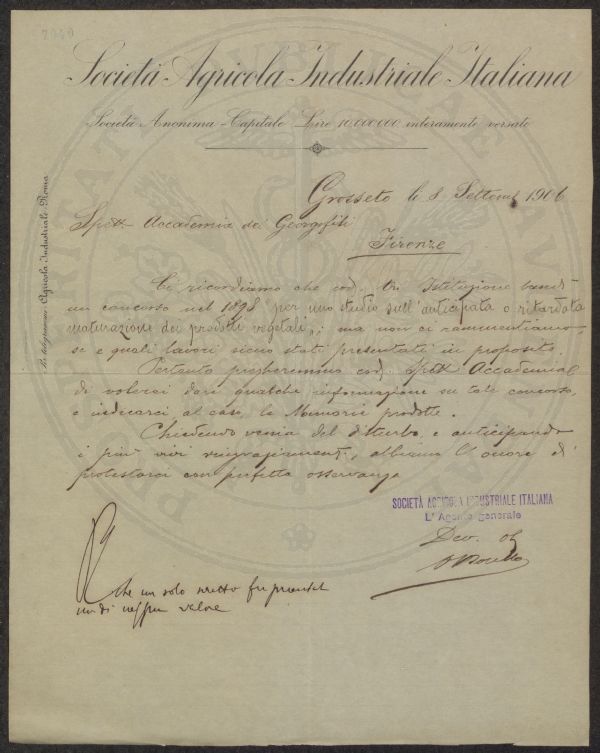 Società Agricola Industriale Italiana
Società Anonima - Capitale Lire 10.000.000 interamente versato
Grosseto li 8 Settemb 1906
Spett. Accademia dei Georgofili
Firenze
Ci ricordiamo che cod. Istituzione bandì
un concorso nel 1898 "per uno studio sull'anticipata o ritardata
maturazione dei prodotti vegetali", ma non ci rammentiamo
se e quali lavori siano stati presentati in proposito.
Pertanto pregheremmo cod. Spett. Accademia
di volerci dare qualche informazione su tale concorso,
e indicarci, al caso, le Memorie prodotte.
Chiedendo venia del disturbo, e anticipando
i più vivi ringraziamenti, abbiamo l'onore di
protestarci con perfetta osservanza
SOCIETÀ AGRICOLA INDUSTRIALE ITALIANA
L'Agente Generale
Dev.
che un solo scritto fu presentat
di neppur valore
Agricola Industriale Roma